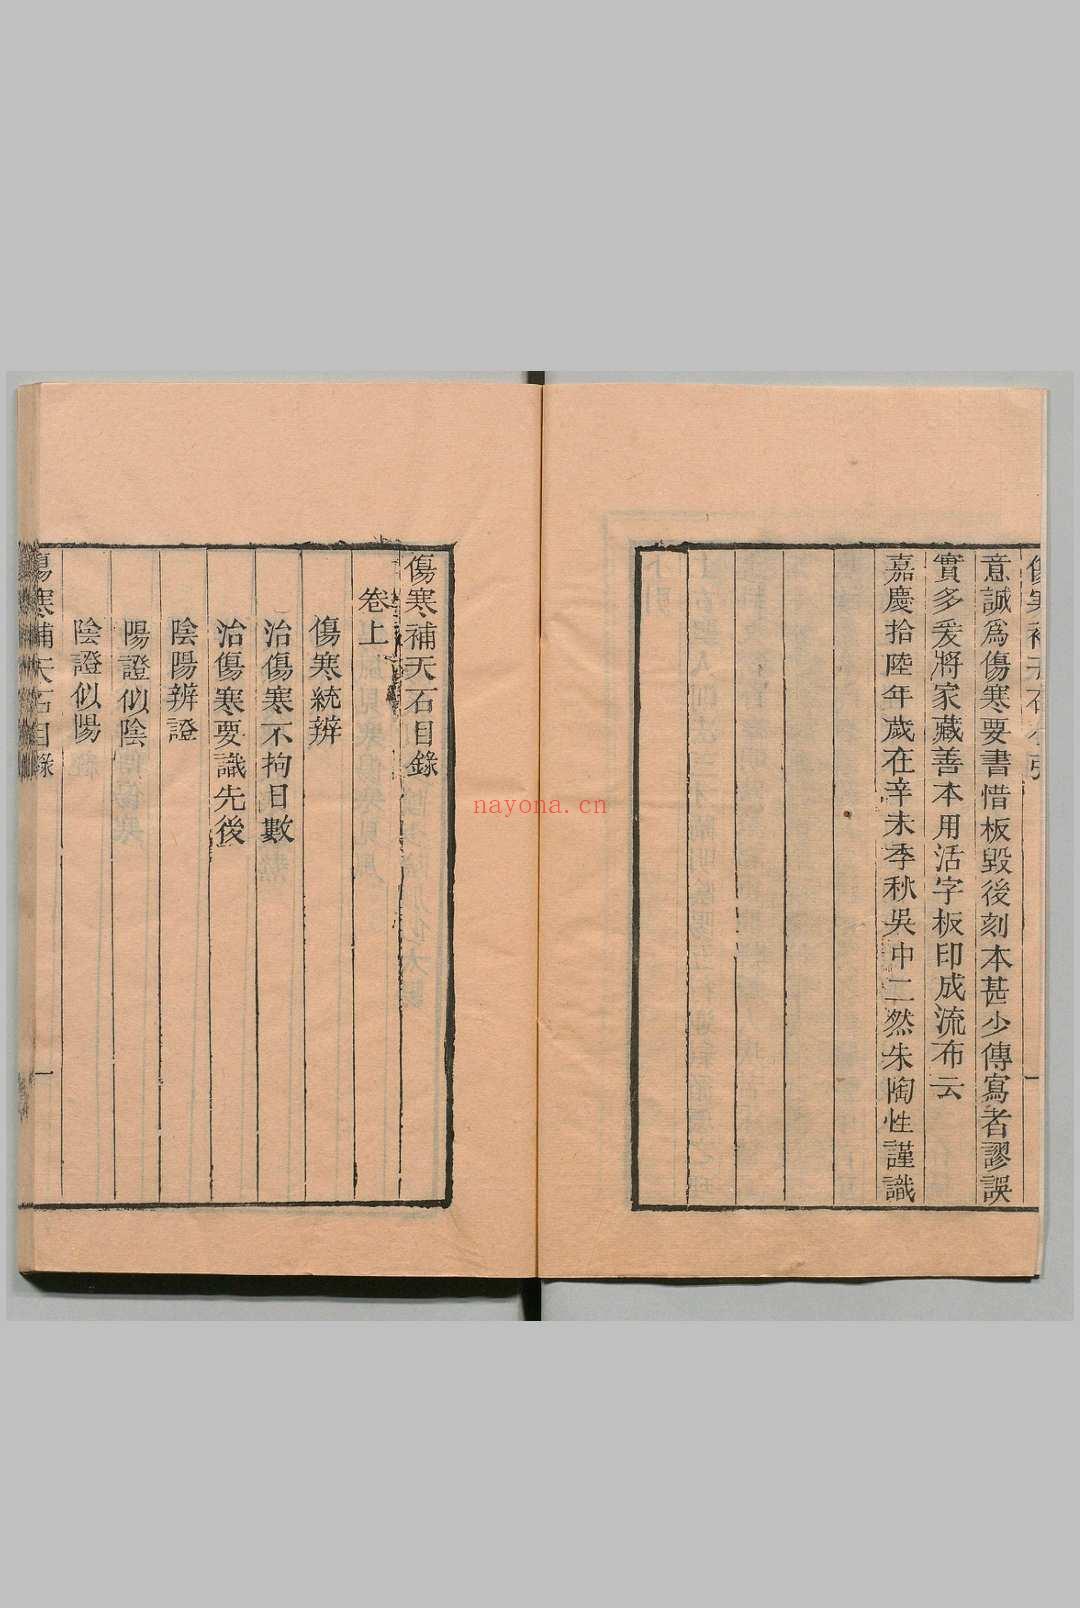 傷寒補天石小引
一
意誠為傷寒要書惜板毀後刻本甚少傳寫者謬誤
實多爰將家藏善本用活字板印成流布云
嘉慶拾陸年歲在辛未季秋吳中二然朱陶性謹識
傷寒補天石目錄
卷上
傷寒統辨
治傷寒不拘日數
治傷寒要識先後
陰陽辨證
陽證似陰
陰證似陽
傷寒補天石目錄
一
nayona.cn